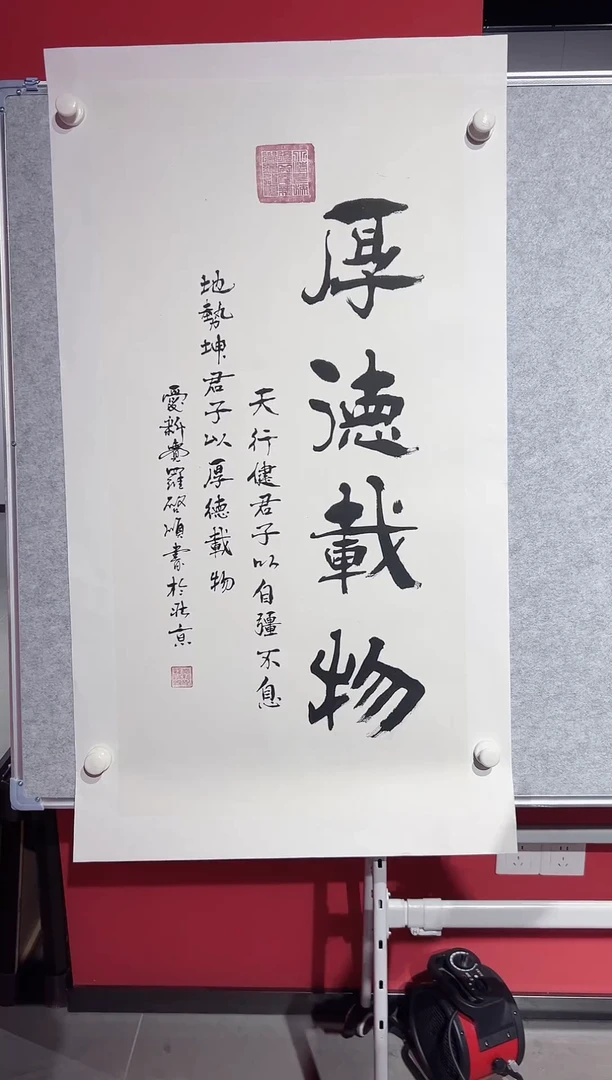 厚德載物
天行健君子以自疆不息
地勢坤君子以厚德載物
愛新覺羅啓順書於北京